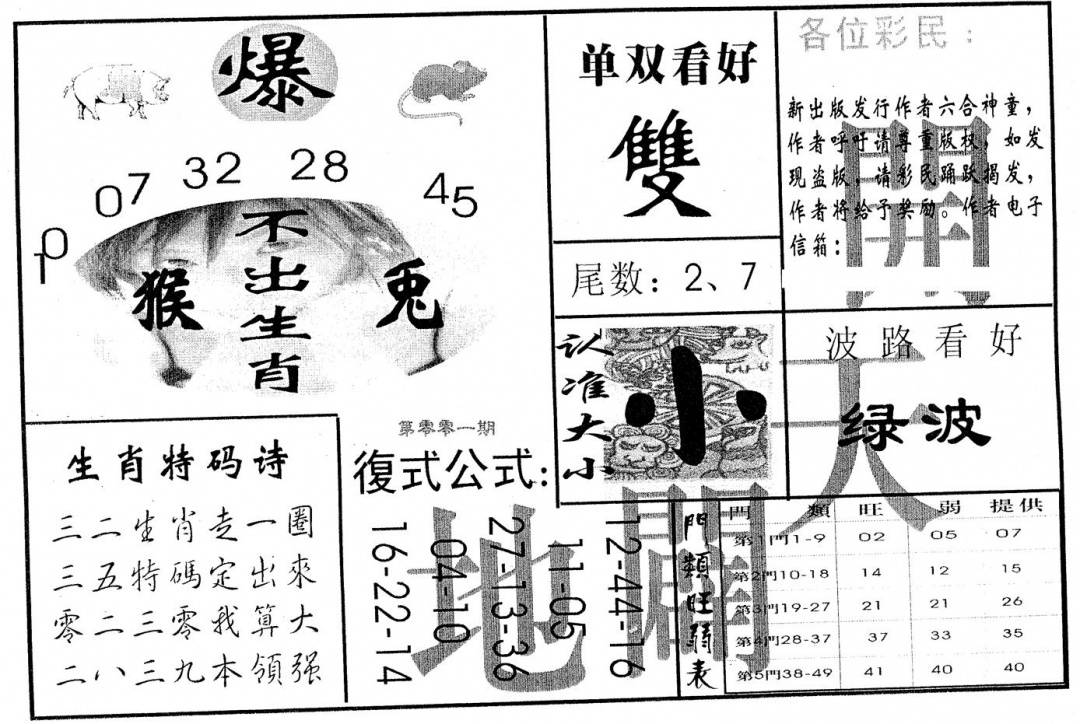 爆
10 07 32 28 45
不出生肖
猴
兔
单双看好
雙
尾数：2、7
各位彩民：
新出版发行作者六合神童，
作者呼吁请尊重版权，如发
现盗版，请彩民踊跃揭发，
作者将给予奖励。作者电子
信箱：
认准大小
小
波路看好
绿波
開天
闢地
生肖特码诗
三二生肖走一圈
三五特碼定出來
零二三零我算大
二八三九本領强
第零零一期
復式公式：
16-22-14
04-10
27-13-36
11-05
12-44-16
門類旺弱表
門類 旺 弱 提供
第1門1-9 02 05 07
第2門10-18 14 12 15
第3門19-27 21 21 26
第4門28-37 37 33 35
第5門38-49 41 40 40